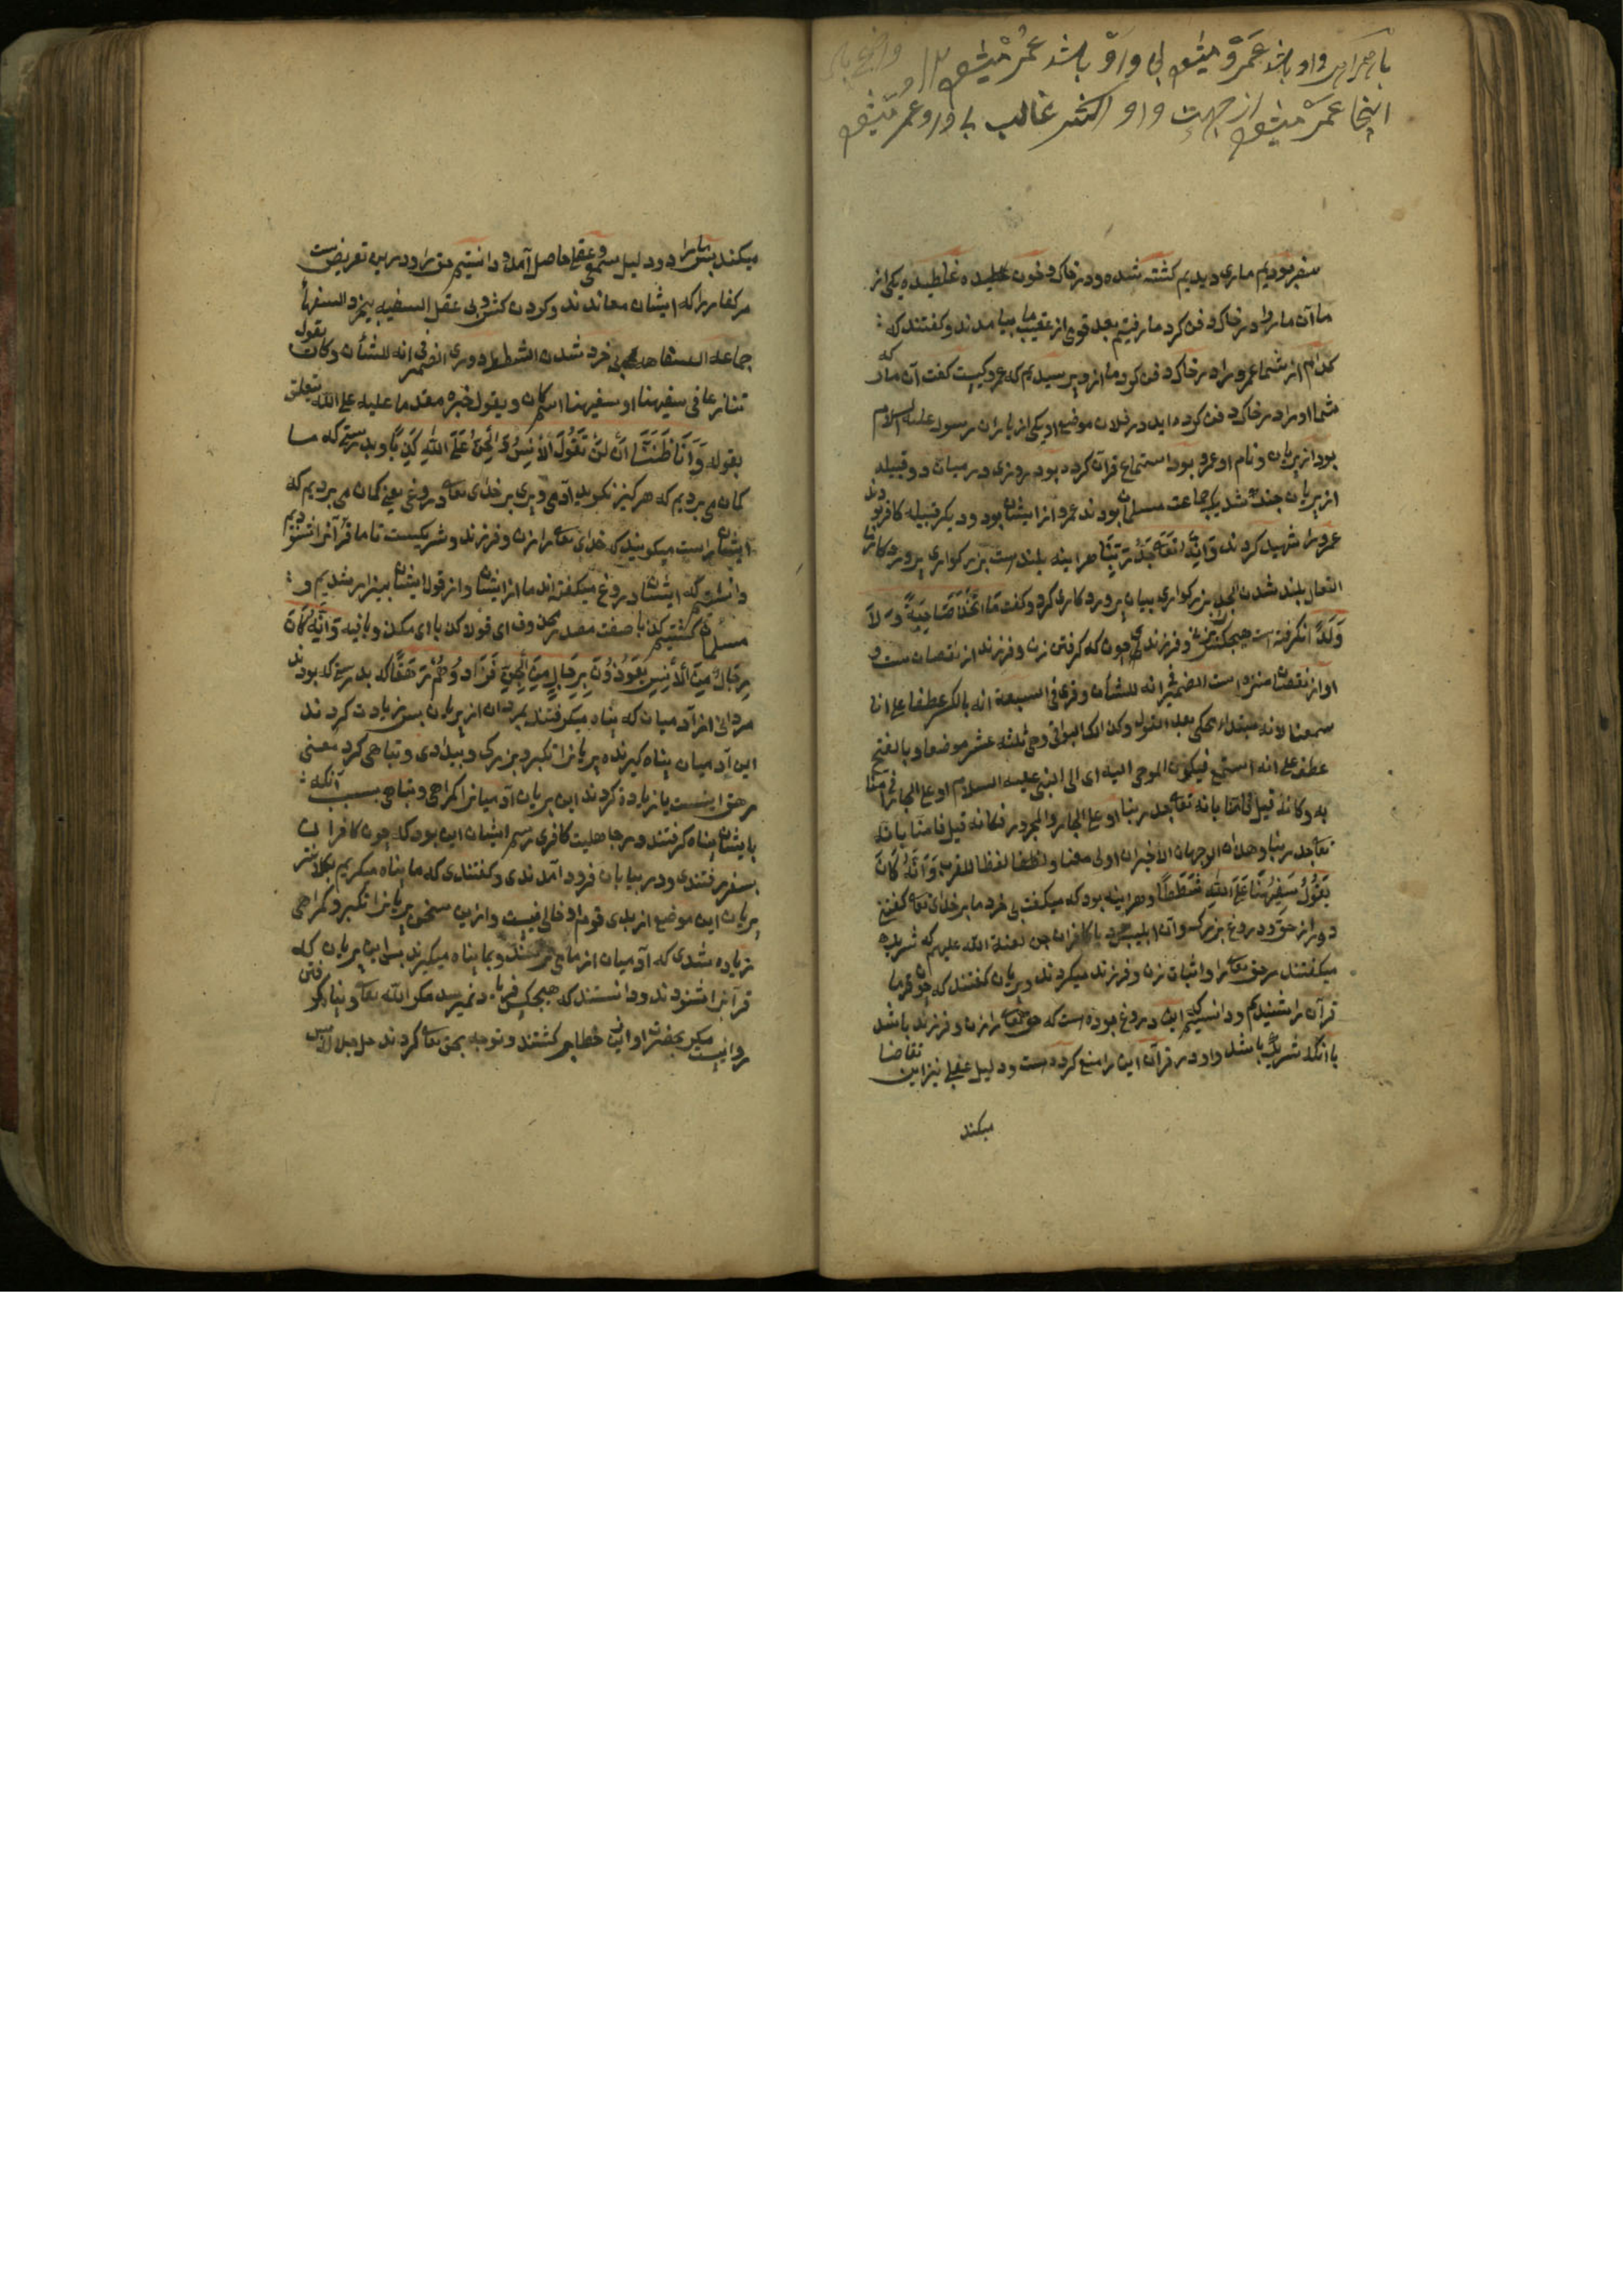 باشد عمرو بی واو باشد عمر
اینجا از جهت واو اکثر غالب بی واو و عمر
سفر بودیم ماری دیدیم کشته شده و در خاک و خون غلطیده یکی از
ما آن مار را در خاک دفن کرد ما رفتیم بعد قومی از عقیب ما بیامدند و کفتند که
کدام از شما عمرو را در خاک دفن کرد ما از و پرسیدیم که عمرو کیست کفت آن مار که
شما او را در خاک دفن کرده اید در فلان موضع او یکی از یاران رسول علیه السلام
بود از پریان و نام او عمرو بود استماع قرآن کرده بود روزی در میان دو قبیله
از پریان جنک شد یک جماعت مسلمان بودند عمرو از ایشان بود و دیکر قبیله کافر بودند
عمرو را شهید کردند وَأَنَّهُ تَعَالَى جَدُّ رَبِّنَا هرآینه بلندست بزرکواری پروردکار ما
التعالی بلند شدن الجد بزرکواری بیان پروردکاری کرد و کفت مَا اتَّخَذَ صَاحِبَةً وَلَا
وَلَدًا نکرفته است هیچکس زن و فرزندی چون که کرفتن زن و فرزند از نقصان ست و
او از نقصان منزه است الضمیر فی انه للشان و قری فی السبعة انه بالکسر عطفا علی انا
سمعنا لانه مبتدا یحکی بعد القول وکذا البواقی وهی ثلثه عشر موضعا و بالفتح
عطف علی انه استمع فیکون الموحی الیه ای الی النبی علیه السلام او علی الجار فی آمنا
به وکانه قیل فآمنا بانه تعالی جد ربنا او علی الجار والمجرور فکانه قیل فامنا بانه
تعالی جد ربنا وهذان الوجهان الاخیران اولی معنا ولفظا لفظا للقرب وَأَنَّهُ كَانَ
يَقُولُ سَفِيهُنَا عَلَى اللَّهِ شَطَطًا و هرآینه بود که میکفت بی خرد ما بر خدای تعالی کفتنی
دور از حق و دروغ بزرک و آن ابلیس بود یا کافران جن لعنة الله علیهم که شریک
میکفتند مر حق تعالی را و اثبات زن و فرزند میکردند و پریان کفتند که چون ما
قرآن را شنیدیم و دانستیم که این دروغ بوده است که حق تعالی را زن و فرزند باشد
یا آنکه شریک باشد و او در قرآن این را منع کرده ست و دلیل عقلی نیز این تقاضا
میکند
میکند پس ما را دو دلیل سمعی و عقلی حاصل آمد و دانستیم حق را و درین تعریض ست
مر کفار را که ایشان معاندند و کردن کش و بی عقل السفیه بیخرد السفهاء
جماعه السفاهه بی خرد شدن الشطط دوری الضمیر فی انه للشان وکان یقول
تنازعا فی سفیهنا او سفیهنا اسم کان و یقول خبره مقدما علیه علی الله یتعلق
بقوله وَأَنَّا ظَنَنَّا أَنْ لَنْ تَقُولَ الْإِنْسُ وَالْجِنُّ عَلَى اللَّهِ كَذِبًا و بدرستی که ما
کمان می بردیم که هرکیز نکوید آدمی و پری بر خدای تعالی دروغی یعنی کمان می بردیم که
ایشان راست میکویند که خدای تعالی را زن و فرزند و شریکیست تا ما قرآن را شنودیم
دانستیم که ایشان دروغ میکفته اند ما از ایشان و از قول ایشان بیزار شدیم و
مسلمان کشتیم کذبا صفت مصدر محذوف ای قولا کذبا ای مکذوبا فیه وَأَنَّهُ كَانَ
رِجَالٌ مِنَ الْإِنْسِ يَعُوذُونَ بِرِجَالٍ مِنَ الْجِنِّ فَزَادُوهُمْ رَهَقًا که بدرستی که بودند
مردانی از آدمیان که پناه میکرفتند بمردان از پریان پس زیادت کردند
این آدمیان پناه کیرنده پریانرا تکبر و بزرکی و بیدادی و تباهی کرد معنی
رهق اینست یا زیاده کردند این پریان آدمیانرا کمراهی و تباهی بسبب آنکه
بایشان پناه کرفتند و در جاهلیت کافری رسم ایشان این بود که چون کافران
بسفر رفتندی و در بیابان فرود آمدندی و کفتندی که ما پناه میکریم بکلانتر
پریان این موضع از بدی قوم او و این سخن پریانرا تکبر و کمراهی
زیاده شدی که آدمیان از ما می ترسند و بما پناه میکیرند پس این پریان که
قرآن را شنودند و دانستند که هیچکس فریاد نمیرسد مکر الله تعالی و پناه کرفتن
روا نیست مکر بحضرت او از این خطا بر کشتند و توجه بحق تعالی کردند جل جلاله پس